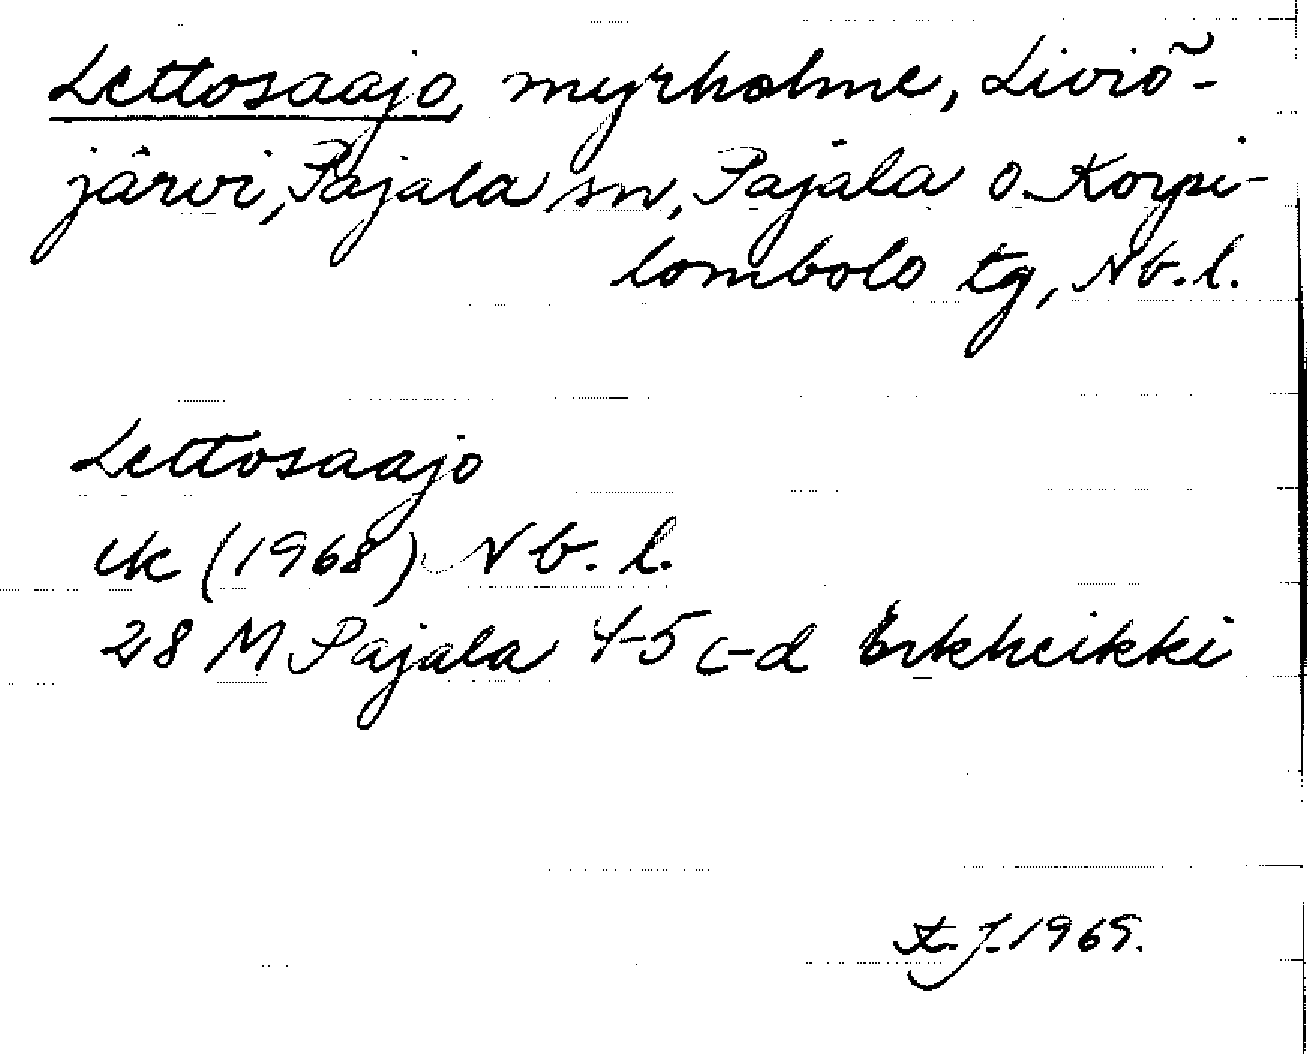 Lettosaajo, myrholme, Liviö-
järvi, Pajala sn, Pajala o. Korpi-
lombolo tg, Nb. l.
Lettosaajo
ek (1968) Nb. l.
28 M Pajala 4-5 c-d Erkheikki
1969.